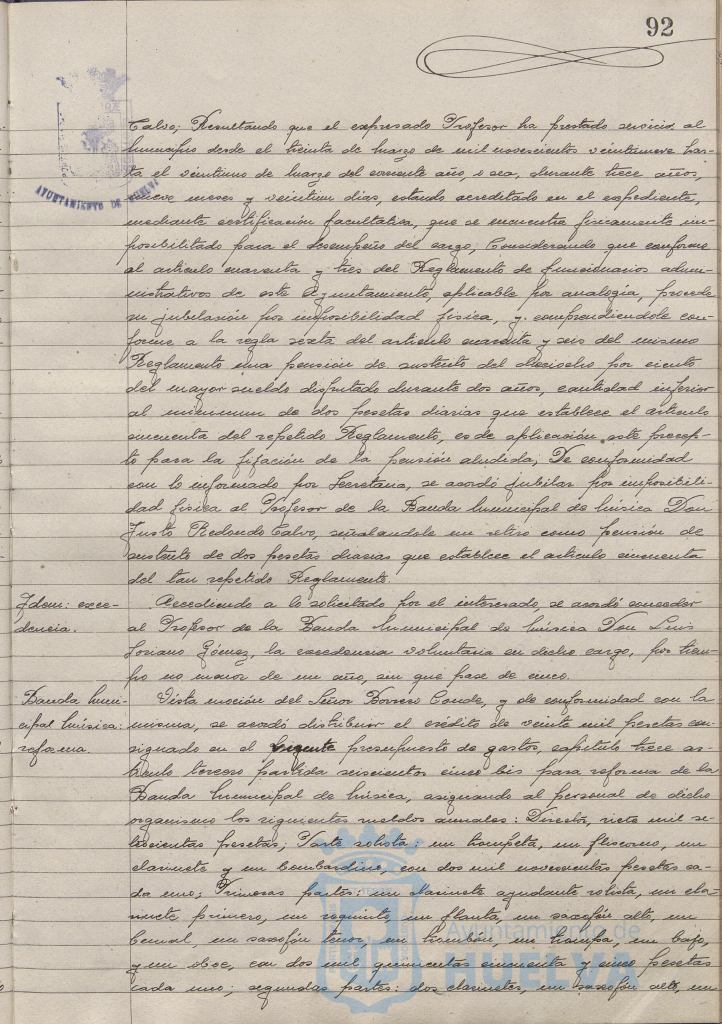 92
AYUNTAMIENTO DE HUELVA
Calvo; Resultando que el expresado Profesor ha prestado servicio al
Municipio desde el treinta de Marzo de mil novecientos veintinueve has-
ta el veintiuno de Marzo del corriente año, o sea, durante trece años,
nueve meses y veintiun dias, estando acreditado en el expediente,
mediante certificación facultativa, que se encuentra fisicamente im-
posibilitado para el desempeño del cargo; Considerando que conforme
al articulo cuarenta y tres del Reglamento de funcionarios admi-
nistrativos de este Ayuntamiento, aplicable por analogía, procede
su jubilación por imposibilidad fisica, y comprendiendole con-
forme a la regla sexta del articulo cuarenta y seis del mismo
Reglamento una pensión de sustento del dieciocho por ciento
del mayor sueldo disfrutado durante dos años, cantidad inferior
al minimum de dos pesetas diarias que establece el articulo
cincuenta del repetido Reglamento, es de aplicación este precep-
to para la fijación de la pensión aludida; De conformidad
con lo informado por Secretaria, se acordó jubilar por imposibili-
dad fisica al Profesor de la Banda Municipal de Música Don
Justo Redondo Calvo, señalandole un retiro como pensión de
sustento de dos pesetas diarias que establece el articulo cincuenta
del tan repetido Reglamento.
Idem: exce-
dencia.
Accediendo a lo solicitado por el interesado, se acordó conceder
al Profesor de la Banda Municipal de Música Don Luis
Soriano Gómez, la excedencia voluntaria en dicho cargo, por tiem-
po no menor de un año, sin que pase de cinco.
Banda Muni-
cipal Música:
reforma.
Vista moción del Señor Borrero Conde, y de conformidad con la
misma, se acordó distribuir el crédito de veinte mil pesetas con-
signado en el vigente presupuesto de gastos, capítulo trece ar-
tículo tercero partida seiscientos cinco bis para reforma de la
Banda Municipal de Música, asignando al personal de dicho
organismo los siguientes sueldos anuales: Director, siete mil se-
tecientas pesetas; Parte solista: un trompeta, un fliscorno, un
clarinete y un bombardino, con dos mil novecientas pesetas ca-
da uno; Primeras partes: un clarinete ayudante solista, un cla-
rinete primero, un requinto, un flauta, un saxofón alto, un
, un saxofón tenor, un trombón, un trompa, un bajo,
y un oboe, con dos mil quinientas cincuenta y cinco pesetas
cada uno; segundas partes: dos clarinetes, un saxofón alto, un
Ayuntamiento de
HUELVA